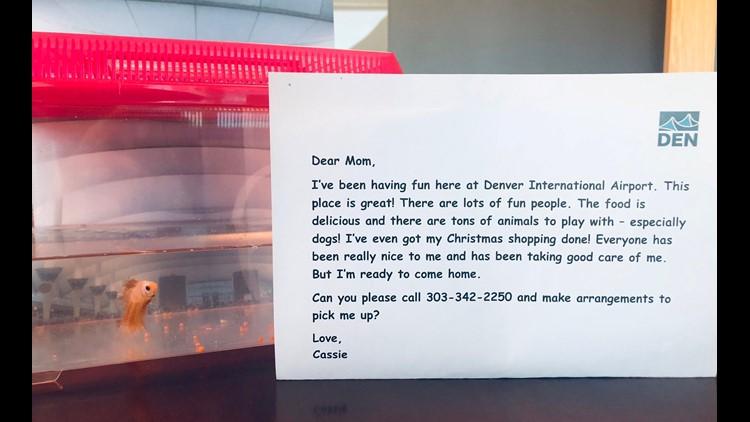 DEN
Dear Mom,
I've been having fun here at Denver International Airport. This
place is great! There are lots of fun people. The food is
delicious and there are tons of animals to play with - especially
dogs! I've even got my Christmas shopping done! Everyone has
been really nice to me and has been taking good care of me.
But I'm ready to come home.
Can you please call 303-342-2250 and make arrangements to
pick me up?
Love,
Cassie